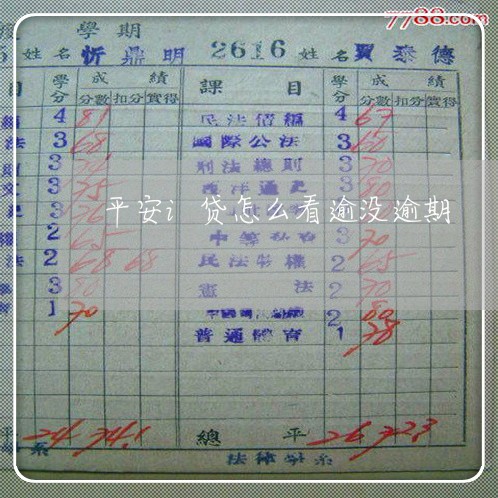 7788.com
學期
姓名 忻鼎明 2616 姓名 賈泰德
目 學分 成績 課目 學分 成績
分數 扣分 實得 分數 扣分 實得
4 81 民法債編 4 67
法 3 68 國際公法 3 60
則 3 刑法總則 3 70
3 75 西洋通史 3 80
平安i 贷怎么看逾没逾期
3 76
2 65 3 70
法 2 68 68 民法物權 2 65
3 80 憲法 2 70
1 70 2 80
普通體育 1 78
平 24 74.1 總平 26 72.3
系 法律學系